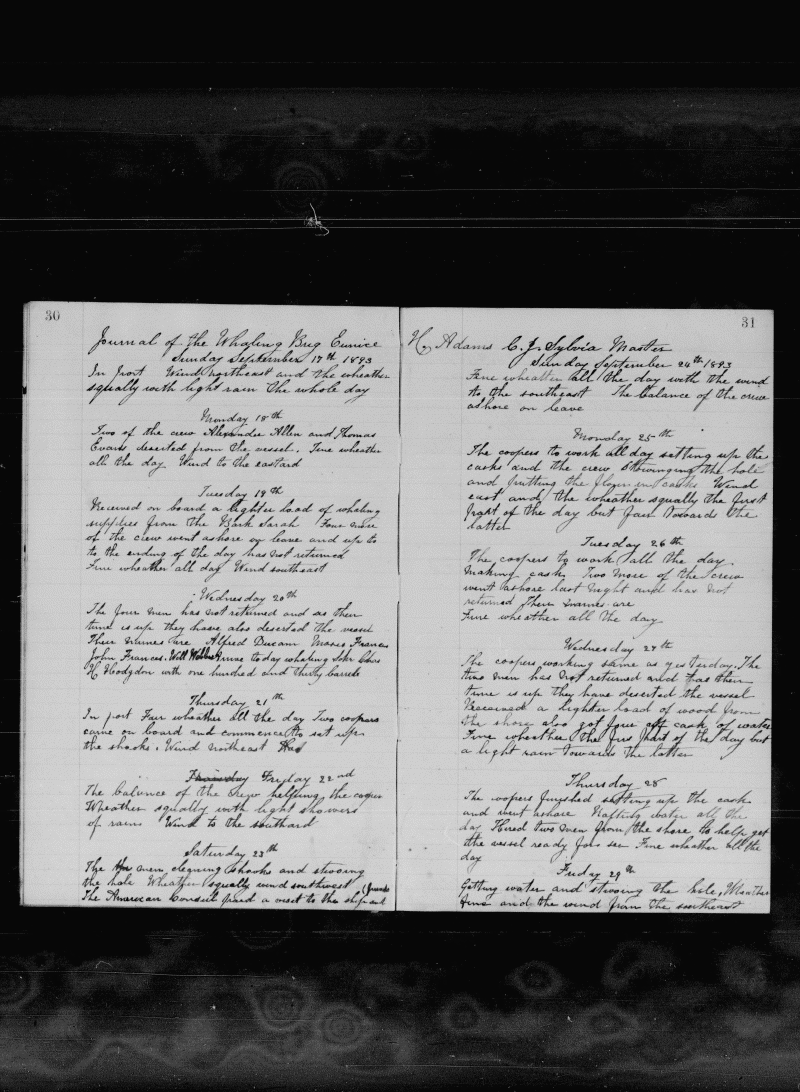 30
Journal of the Whaling Brig Eunice
Sunday September 17th 1893
In port Wind northeast and the wheather
squally with light rain the whole day
Monday 18th
Two of the crew Alexander Allen and Thomas
Evans deserted from the vessel. Fine wheather
all the day Wind to the eastard
Tuesday 19th
Received on board a lighter load of whaling
supplies from the Bark Sarah Four more
of the crew went ashore on leave and up to
to the ending of the day has not returned
Fine wheather all day Wind southeast
Wednesday 20th
The four men has not returned and as their
time is up they have also deserted the vessel
Their names are Alfred Duncan Frances
John Frances. Will today whaling Schr Chas
H Hodgdon with one hundred and thirty barrels
Thursday 21th
In port Fair wheather all the day Two coopers
came on board and commence to set up
the shooks. Wind northeast
Friday 22nd
The balance of the crew helping the cooper
Wheather squally with light showers
of rains Wind to the southard
Saturday 23th
The men cleaning shooks and stowing
the hole Wheather squally wind southwest
The American Consul paid a visit to the ship and
31
H. Adams C. J. Sylvia Master
Sunday September 24th 1893
Fine wheather all the day with the wind
to the southeast The balance of the crew
ashore on leave
Monday 25th
The coopers to work all day setting up the
casks and the crew the hole
and putting the flour in casks Wind
east and the wheather squally the first
part of the day but fair towards the
latter
Tuesday 26th
The coopers to work all the day
making cask Two more of the crew
went ashore last night and has not
returned Their names are
Fine wheather all the day
Wednesday 27th
The coopers working same as yesterday. The
two men has not returned and has their
time is up they have deserted the vessel
Received a lighter load of wood from
the shore also got four cask of water
Fine wheather the firs part of the day but
a light rain towards the latter
Thursday 28
The coopers finished setting up the cask
and went ashore Rafting water all the
day Hired two men from the shore to help get
the vessel ready for sea Fine wheather all the
day
Friday 29th
Getting water and stowing the hole. Weather
fine and the wind from the southeast